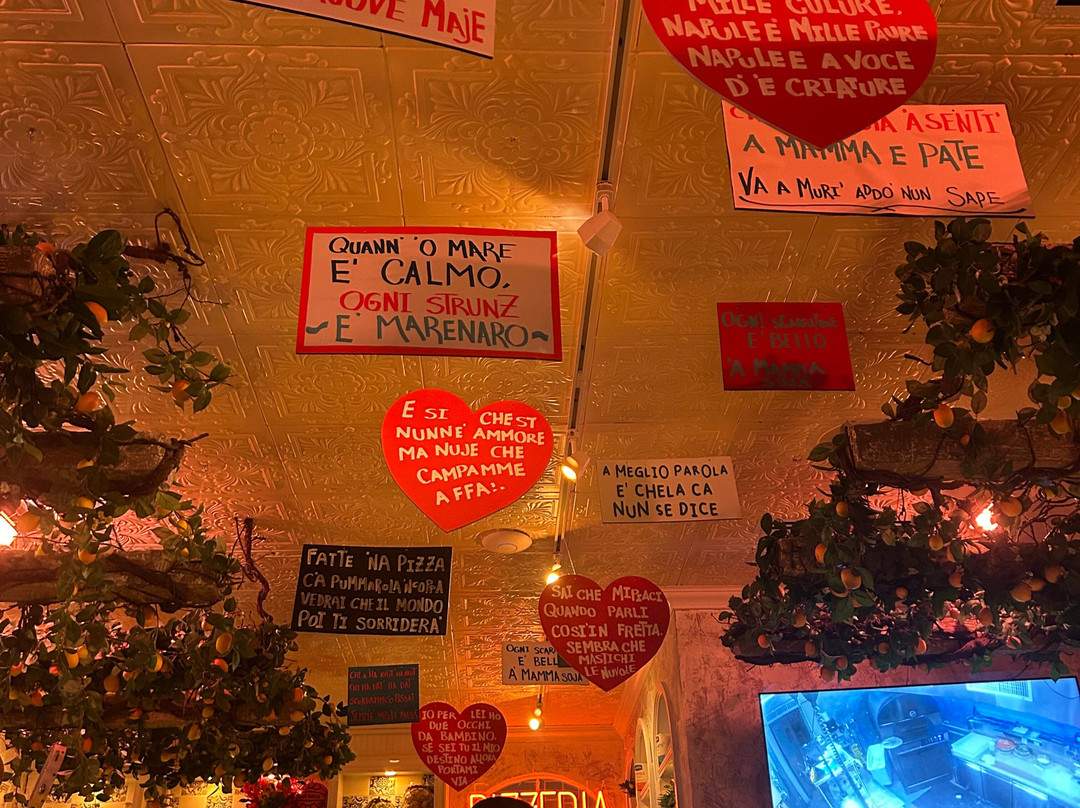 MAJE
MILLE CULURE,
NAPULE E' MILLE PAURE
NAPULE E A VOCE
D' E CRIATURE
'A SENTI'
A MAMMA E PATE
VA A MURI' ADDO' NUN SAPE
QUANN' 'O MARE
E' CALMO,
OGNI STRUNZ
~ E' MARENARO ~
OGNI
E' BELLO
'A MAMMA
SOJA
E SI CHEST
NUNN'E' AMMORE
MA NUJE CHE
CAMPAMME
A FFA'.
A MEGLIO PAROLA
E' CHELA CA
NUN SE DICE
FATTE 'NA PIZZA
C'A PUMMAROLA 'NCOPPA
VEDRAI CHE IL MONDO
POI TI SORRIDERA'
SAI CHE MI PIACI
QUANDO PARLI
COSI' IN FRETTA,
SEMBRA CHE
MASTICHI
LE NUVOLE
OGNI
E' BELL
A MAMMA SOJA
IO PER LEI HO
DUE OCCHI
DA BAMBINO.
SE SEI TU IL MIO
DESTINO ALLORA
PORTAMI
VIA
PIZZERIA